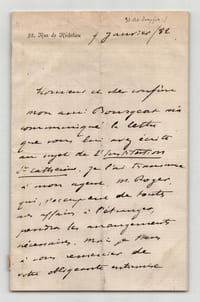 22, Rue de Richelieu
9 Janvier /82
Monsieur et cher confrère
mon ami Bourgeat m'a
communiqué la lettre
que vous lui avez écrite
au sujet de l'Institution
Ste Catherine. Je l'ai transmise
à mon agent, M. Roger,
qui s'occupant de toutes
ses affaires à l'étranger,
prendra les arrangements
nécessaires. Mais je tiens
à vous remercier de
votre obligeante entremise